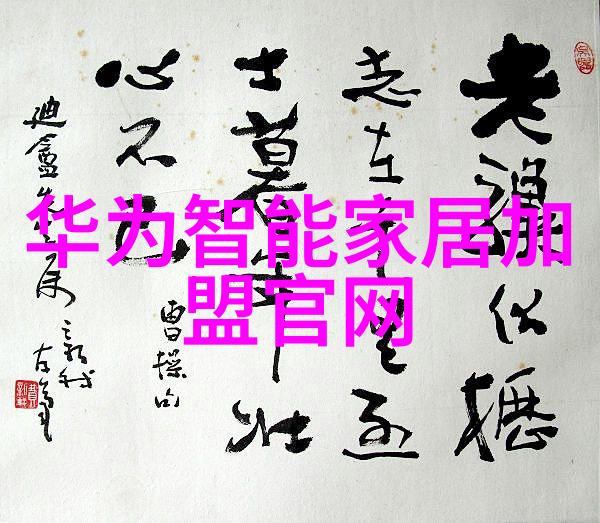 华为智能家居加
盟官网
老驥伏櫪
志在千里烈
士暮年壮
心不已
曹操句